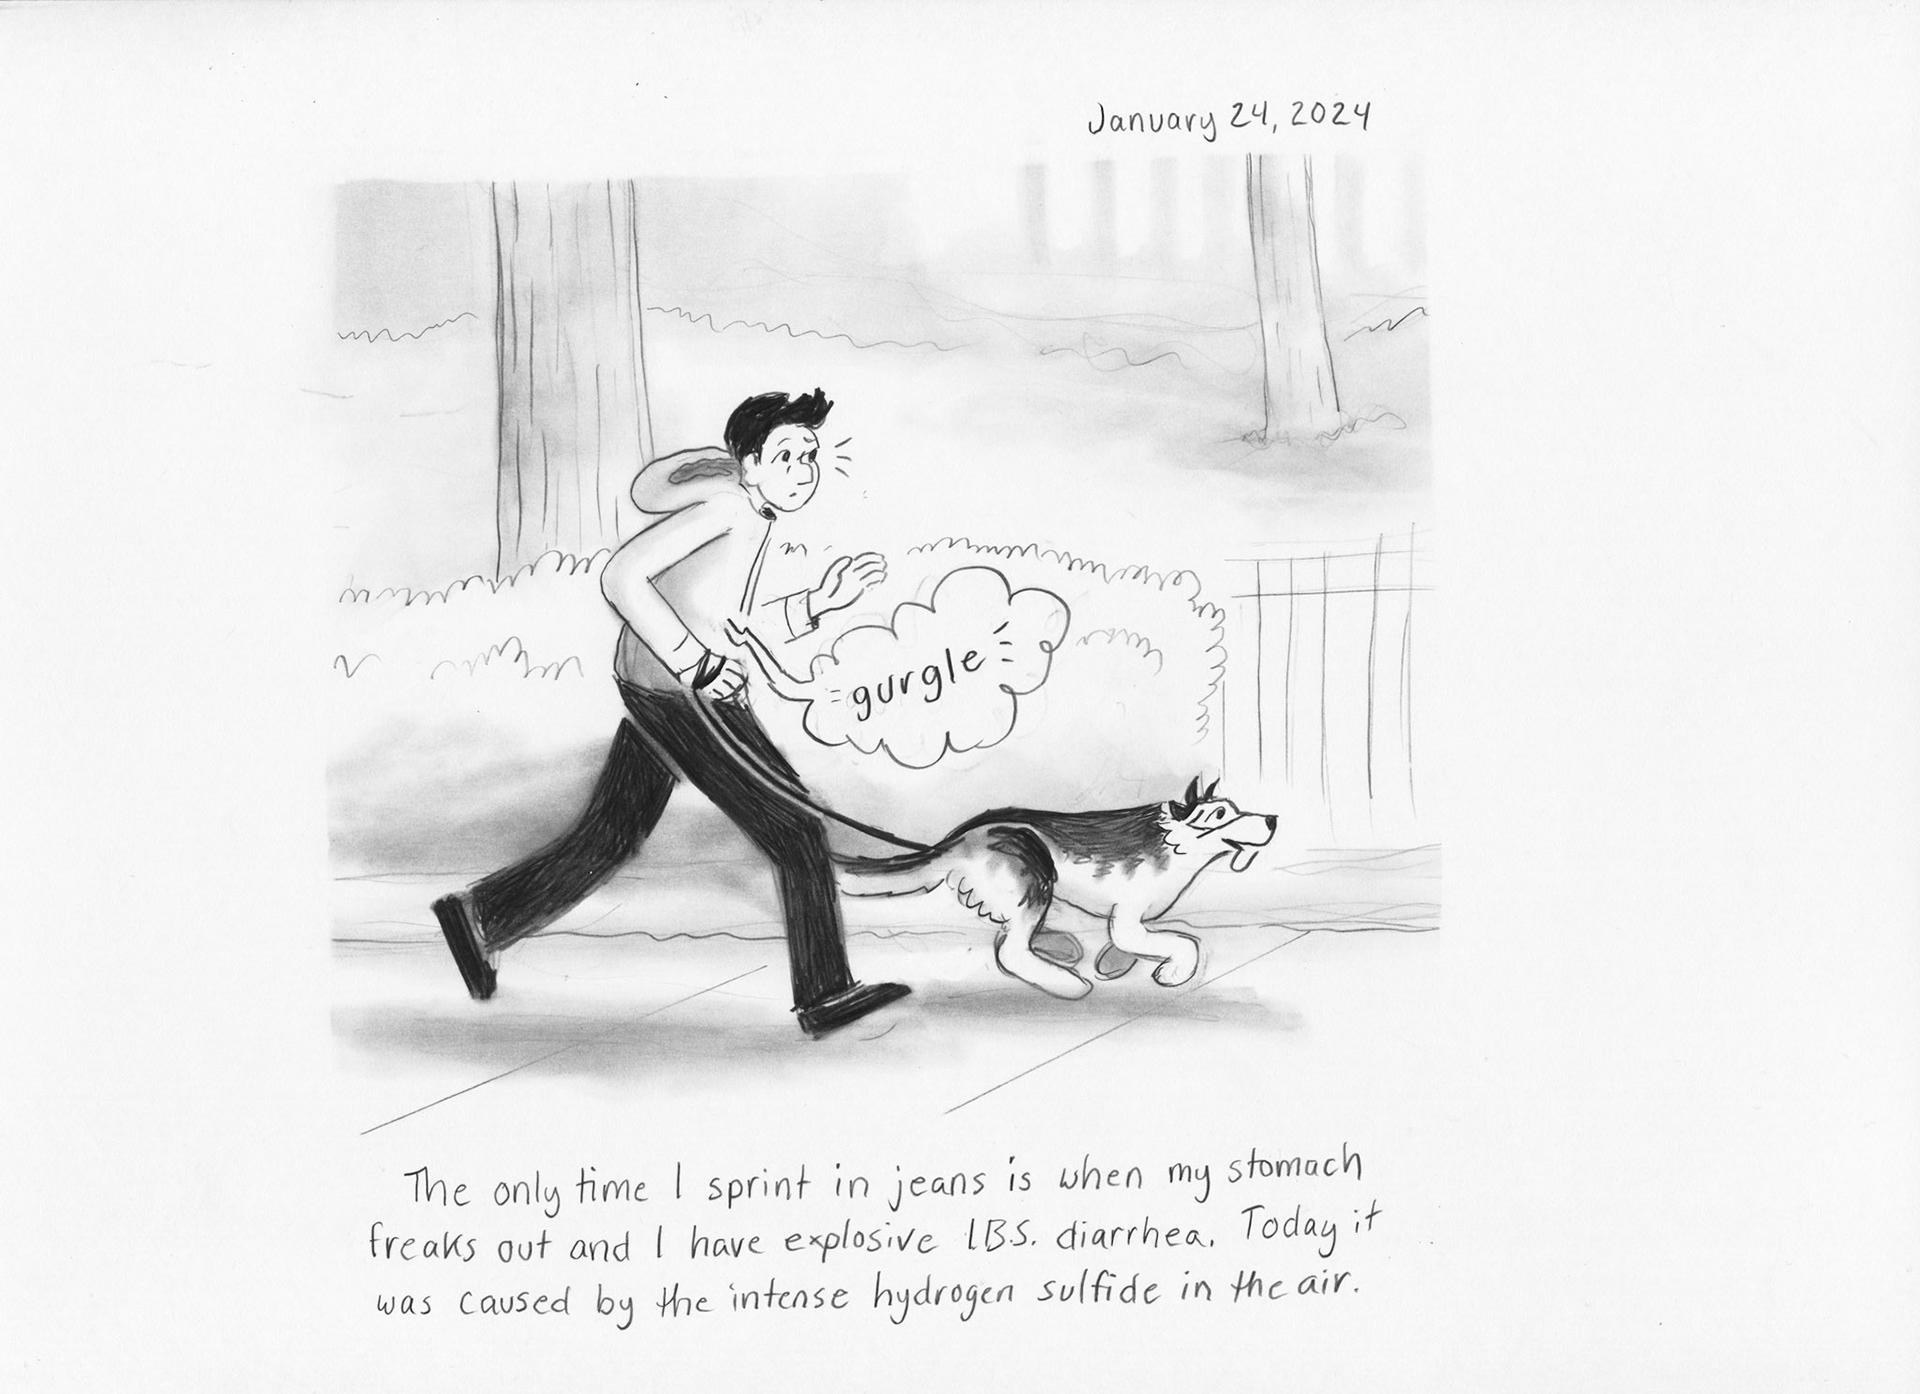 January 24, 2024
gurgle
The only time I sprint in jeans is when my stomach
freaks out and I have explosive I.B.S. diarrhea. Today it
was caused by the intense hydrogen sulfide in the air.